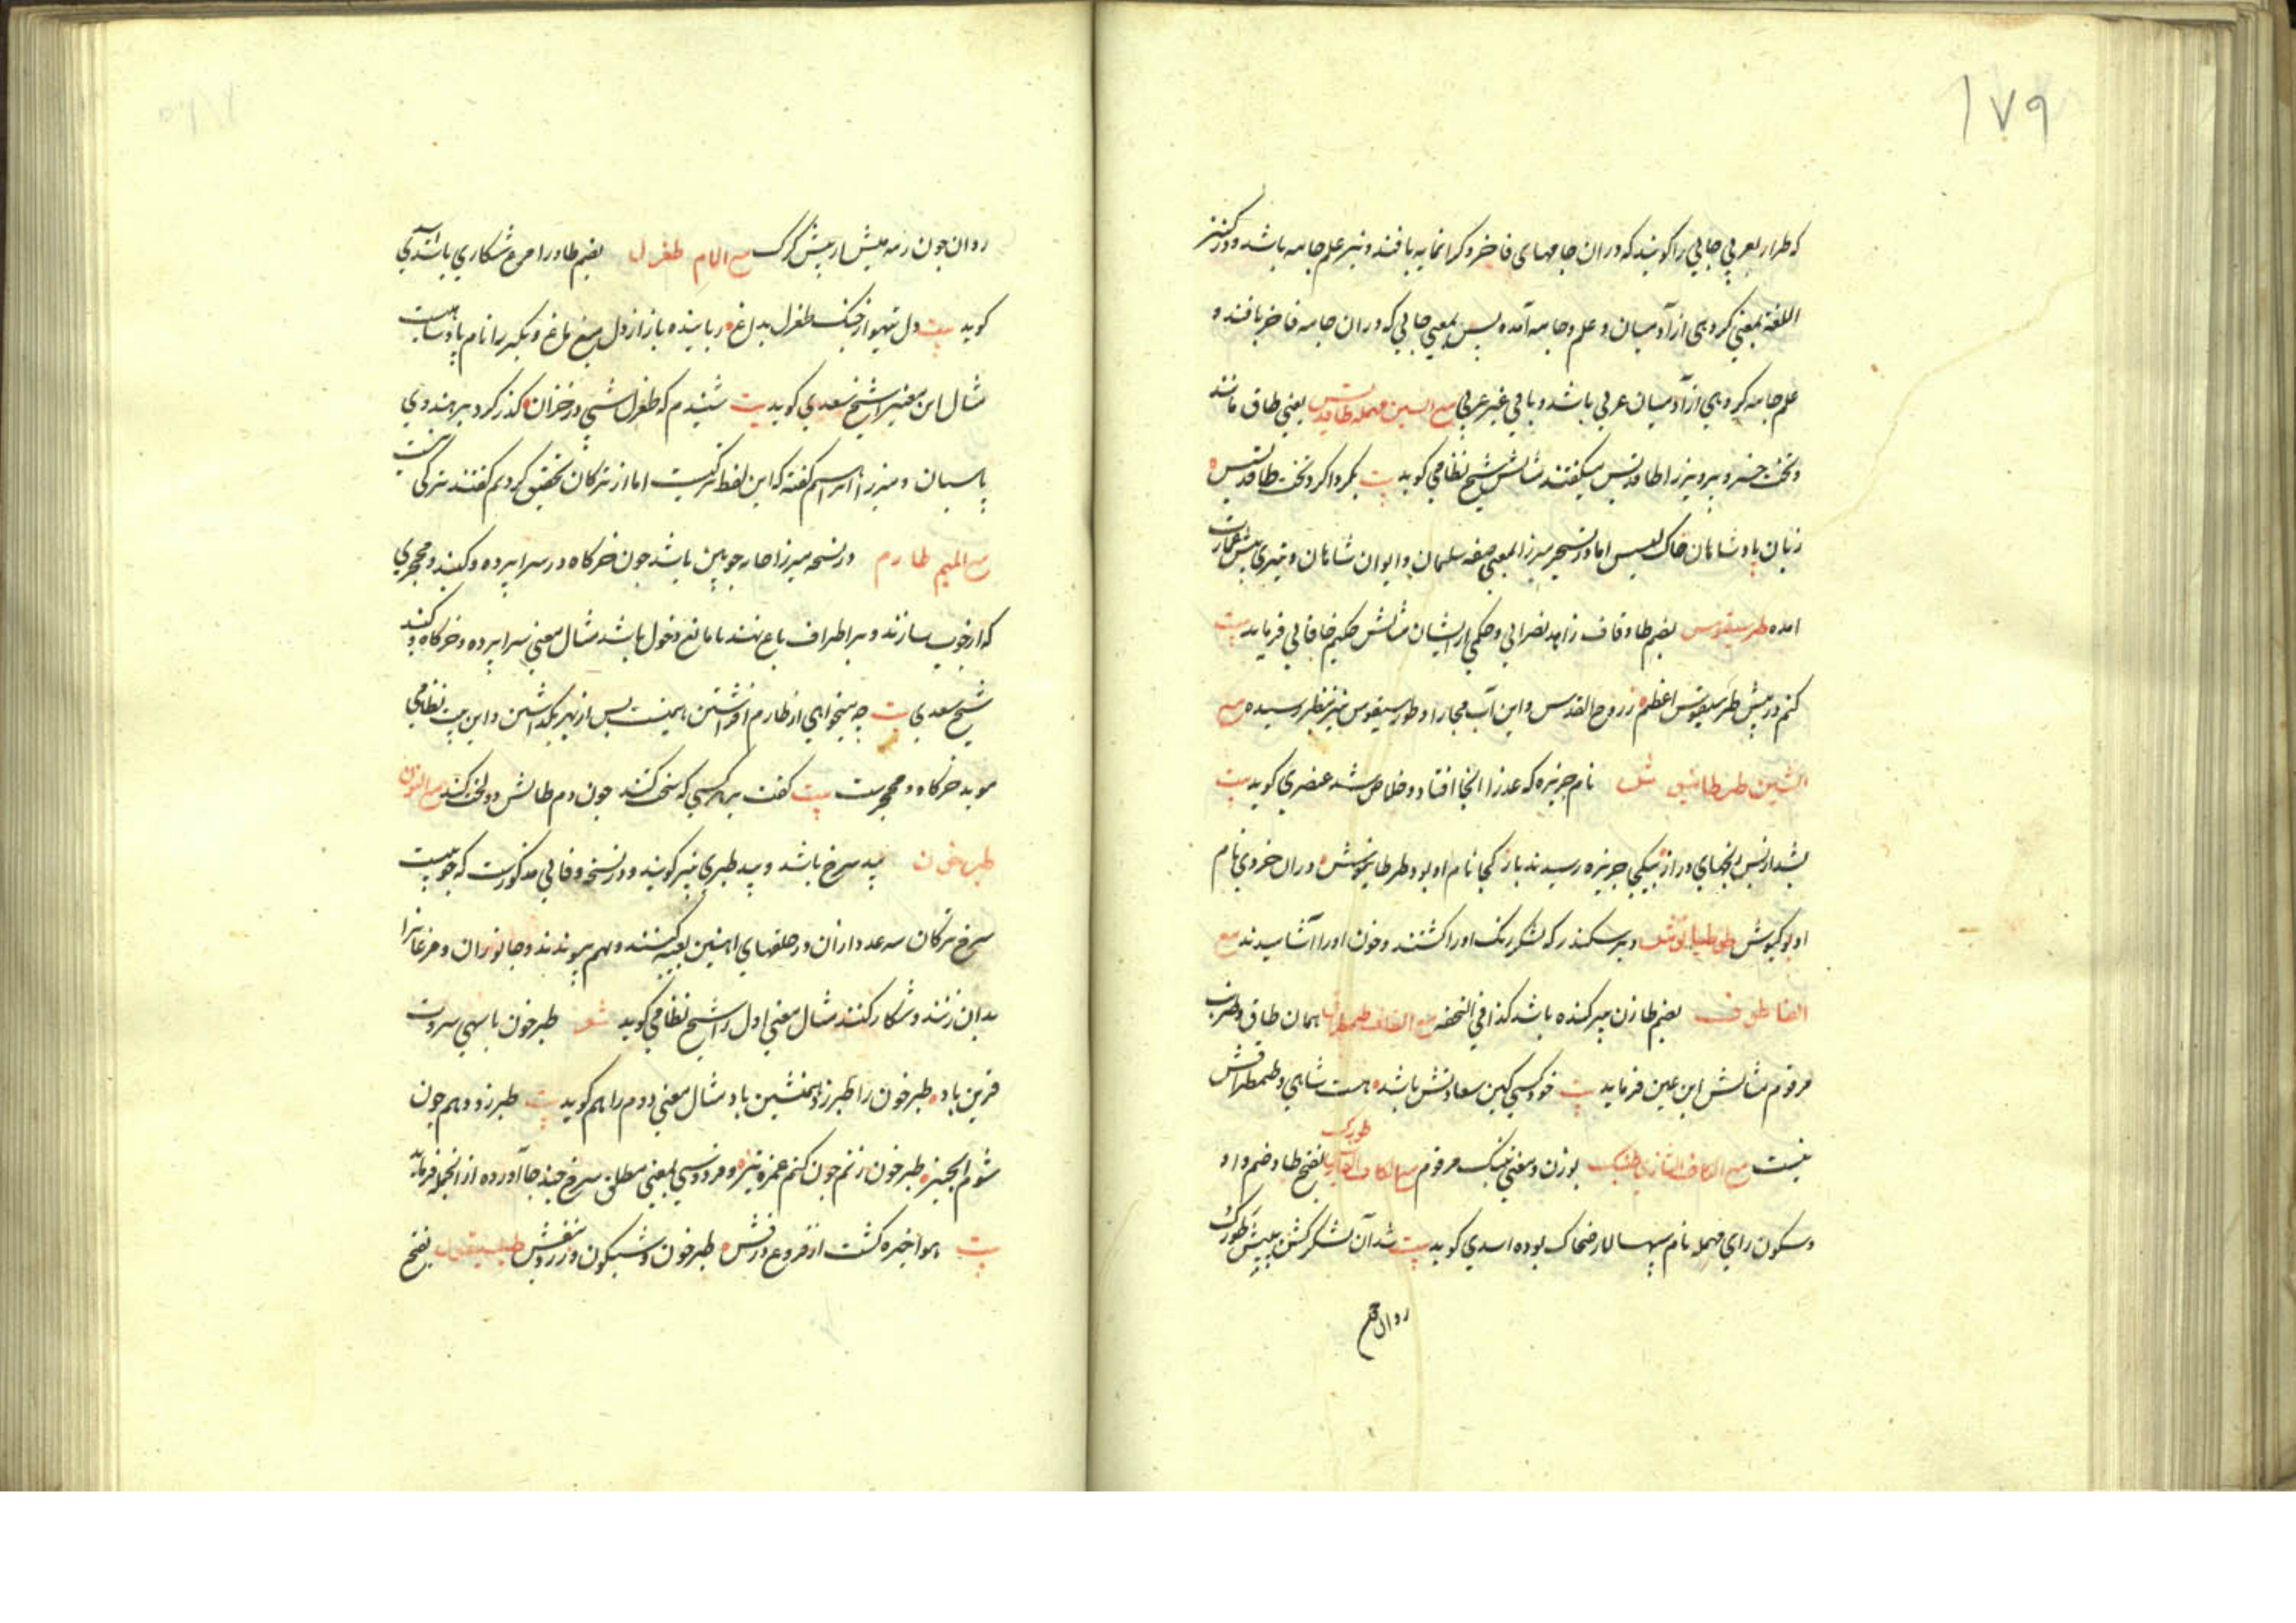 ۱۷۹
که طراز بعربی جایی را کویند که دران جامهای فاخر و کرانمایه بافند و نیز علم جامه باشد و در کنز
اللغة بمعنی کروهی از آدمیان و علم و جامه آمده پس بمعنی جایی که دران جامه فاخر بافند و
علم جامه کروهی از آدمیان عربی باشد و باقی غیر عربی مع السین مهمله طاقدیس یعنی طاق مانند
و تخت خسرو پرویز را طاقدیس میکفتند مثالش شیخ نظامی کوید بیت بکرد اکرد تخت طاقدیس
زبان پادشاهان خاک لیس اما در نسخه میرزا بمعنی صفه سلیمان و ایوان شاهان و نیزی پیش عمارت
امده طرسیقوس بضم طا و قاف زاهد نصرانی و حکمی از ایشان مثالش حکیم خاقانی فرماید بیت
کنم در پیش طرسیقوس اعظم ز روح القدس و ابن و آب مجارا و طورسیقوس نیز بنظر رسیده مع
الشین طرطانیوش نام جزیره که عذرا انجا افتاد و خلاص شد عنصری کوید بیت
دران خردی نام
او بو کیوش طوطیانوش دبیر سکندر که لشکر زنک او را کشتند و خون او را آشامیدند مع
الفا طوف بضم طا زن پیر کنده باشد کذا فی التحفه مع القاف طمطراق همان طاق و طرنب
مرقوم مثالش ابن یمین فرماید بیت خود کسی کین سعادتش باشد هست شاهی و طمطراقش
نیست مع الکاف التازی طنبک بوزن و معنی تنبک مرقوم مع الکاف الفارسی طورک بفتح طا و ضم واو
و سکون رای مهمله نام سپهسالار ضحاک بوده اسدی کوید بیت شد آن لشکر کشن پیش طورک
روان چون
روان چون رمه میش از پیش کرک مع اللام طغرل بضم طا و را مرغ شکاری باشد
کوید بیت دل تیهو از چنک طغرل بداغ رباینده باز از دل میغ ماغ و دیکر را نام پادشاهیست
مثال این معنی را شیخ سعدی کوید بیت شنیدم که طغرل شبی در خزان کذر کرد بر هندوی
پاسبان و میرزا ابراهیم کفته که این لفظ ترکیست اما از ترکان تحقیق کردیم کفتند ترکی نیست
مع المیم طارم در نسخه میرزا خانه چوبین باشد چون خرکاه و در سراپرده و کنبد و محجری
که از چوب سازند و بر اطراف باغ نهند تا مانع دخول باشد مثال معنی سراپرده و خرکاه و کنبد
شیخ سعدی بیت چه میخواهی از طارم افراشتن همینت بس از بهر بکذاشتن و این بیت نظامی
موید خرکاه و محجرست بیت کفت هر کسی که سخت کنند چون درم طالش دو لخت کنند مع النون
طبرخون بید سرخ باشد و بید طبری نیز کویند و در نسخه وفایی مذکورست که چوبیست
سرخ ترکان سه عدد از آن در حلقهای اهنین تعبیه کنند و بهم پیوندند و جانوران و مرغانرا
بدان زنند و شکار کنند مثال معنی اول را شیخ نظامی کوید شعر طبرخون با سهی سروت
قرین باد طبرخون را طبرزد همنشین باد مثال معنی دوم را هم کوید بیت طبرزد دهم چون
شوم انجیز طبرخون زنم چون کنم غمزه تیز و فردوسی بمعنی مطلق سرخ چند جا آورده از انجمله فرماید
بیت هوا خیره کشت از فروغ درفش طبرخون و شبکون و زرد و بنفش بفتح